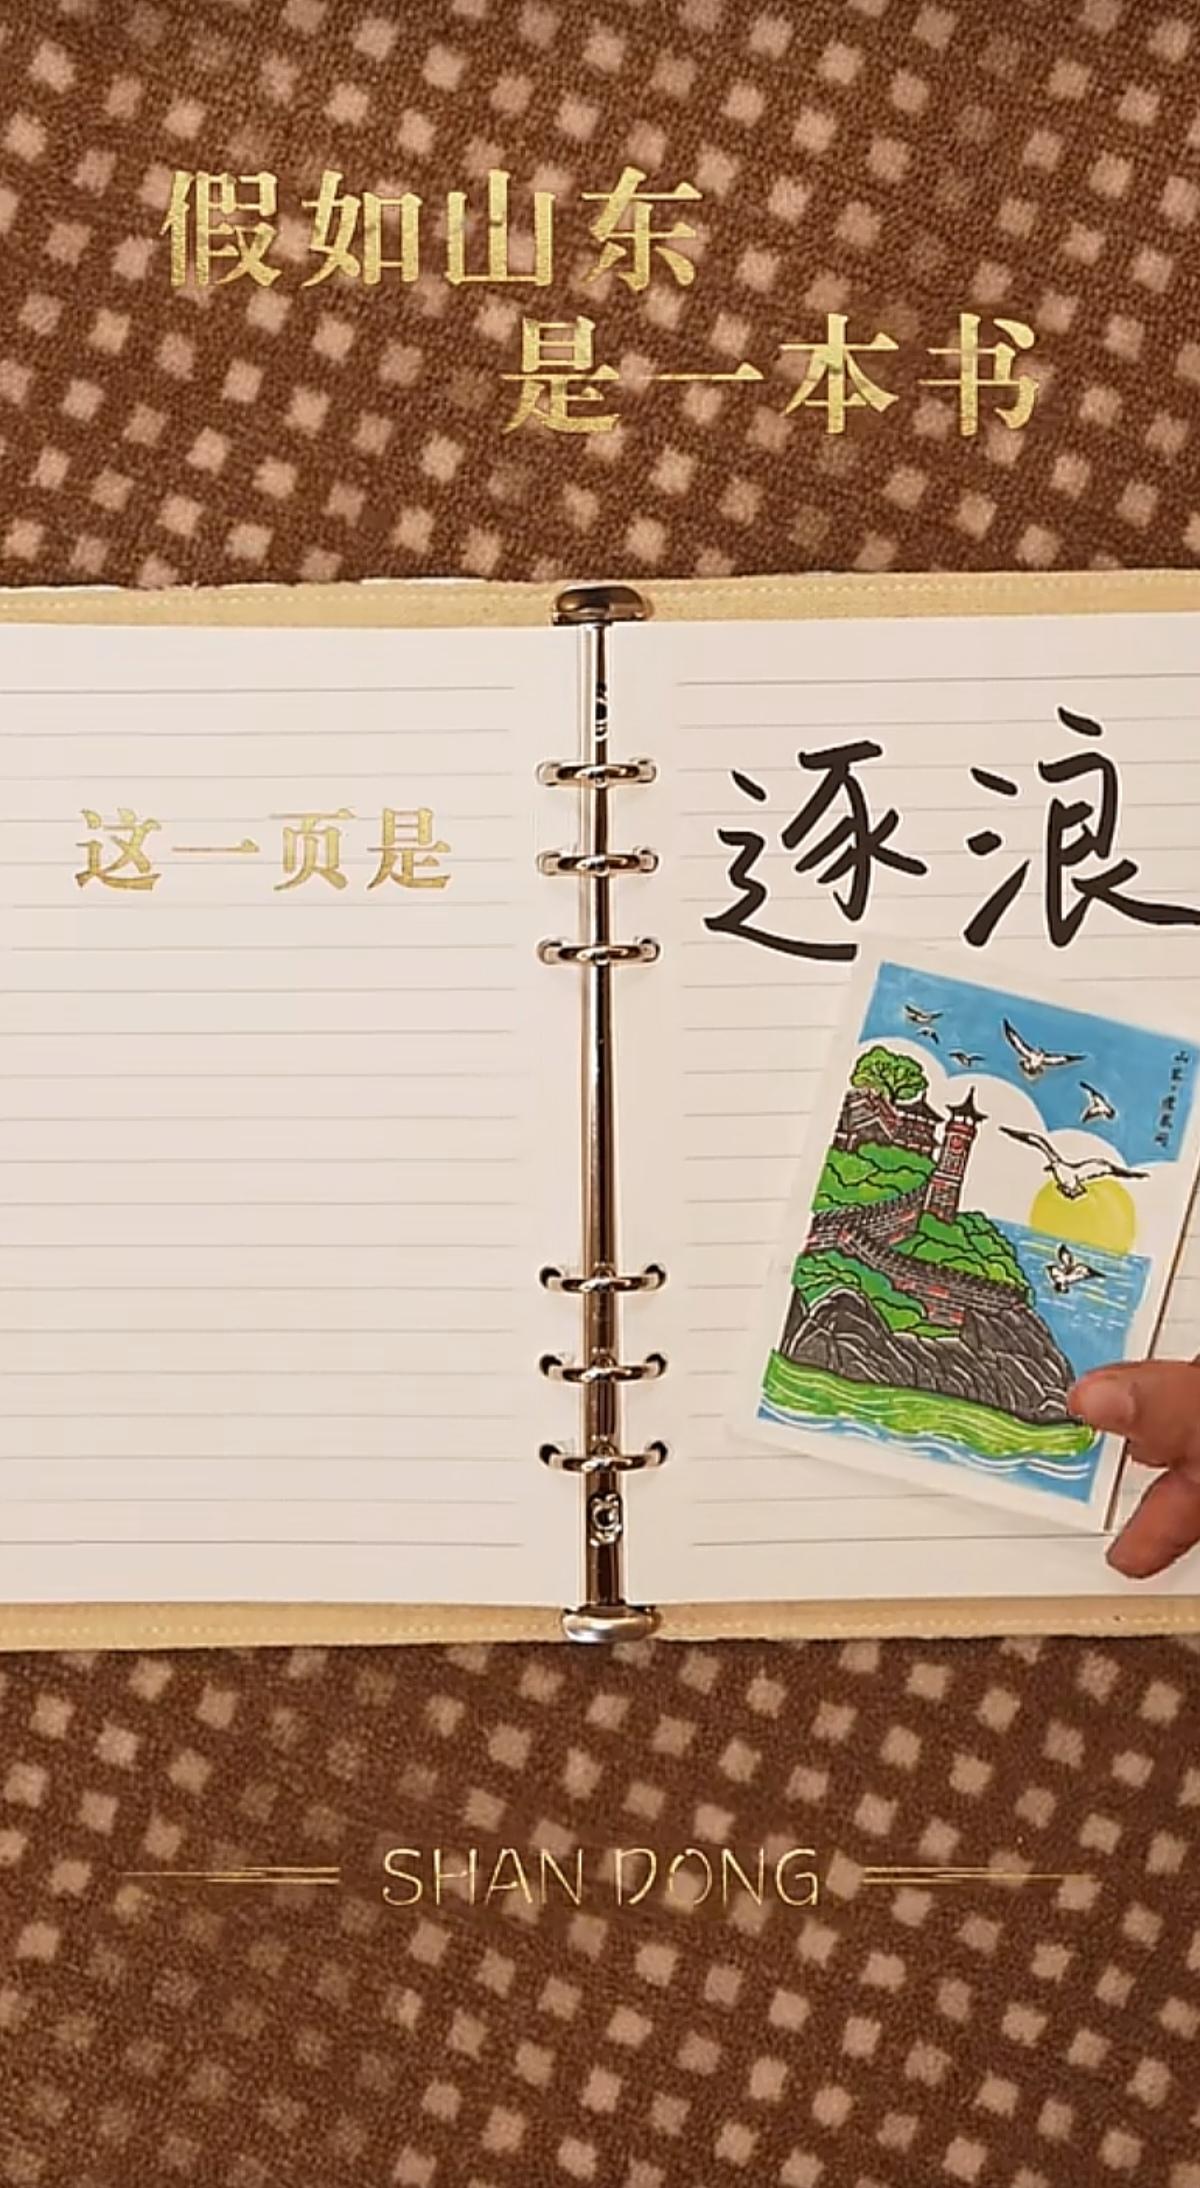 假如山东
是一本书
这一页是
逐浪
SHAN DONG